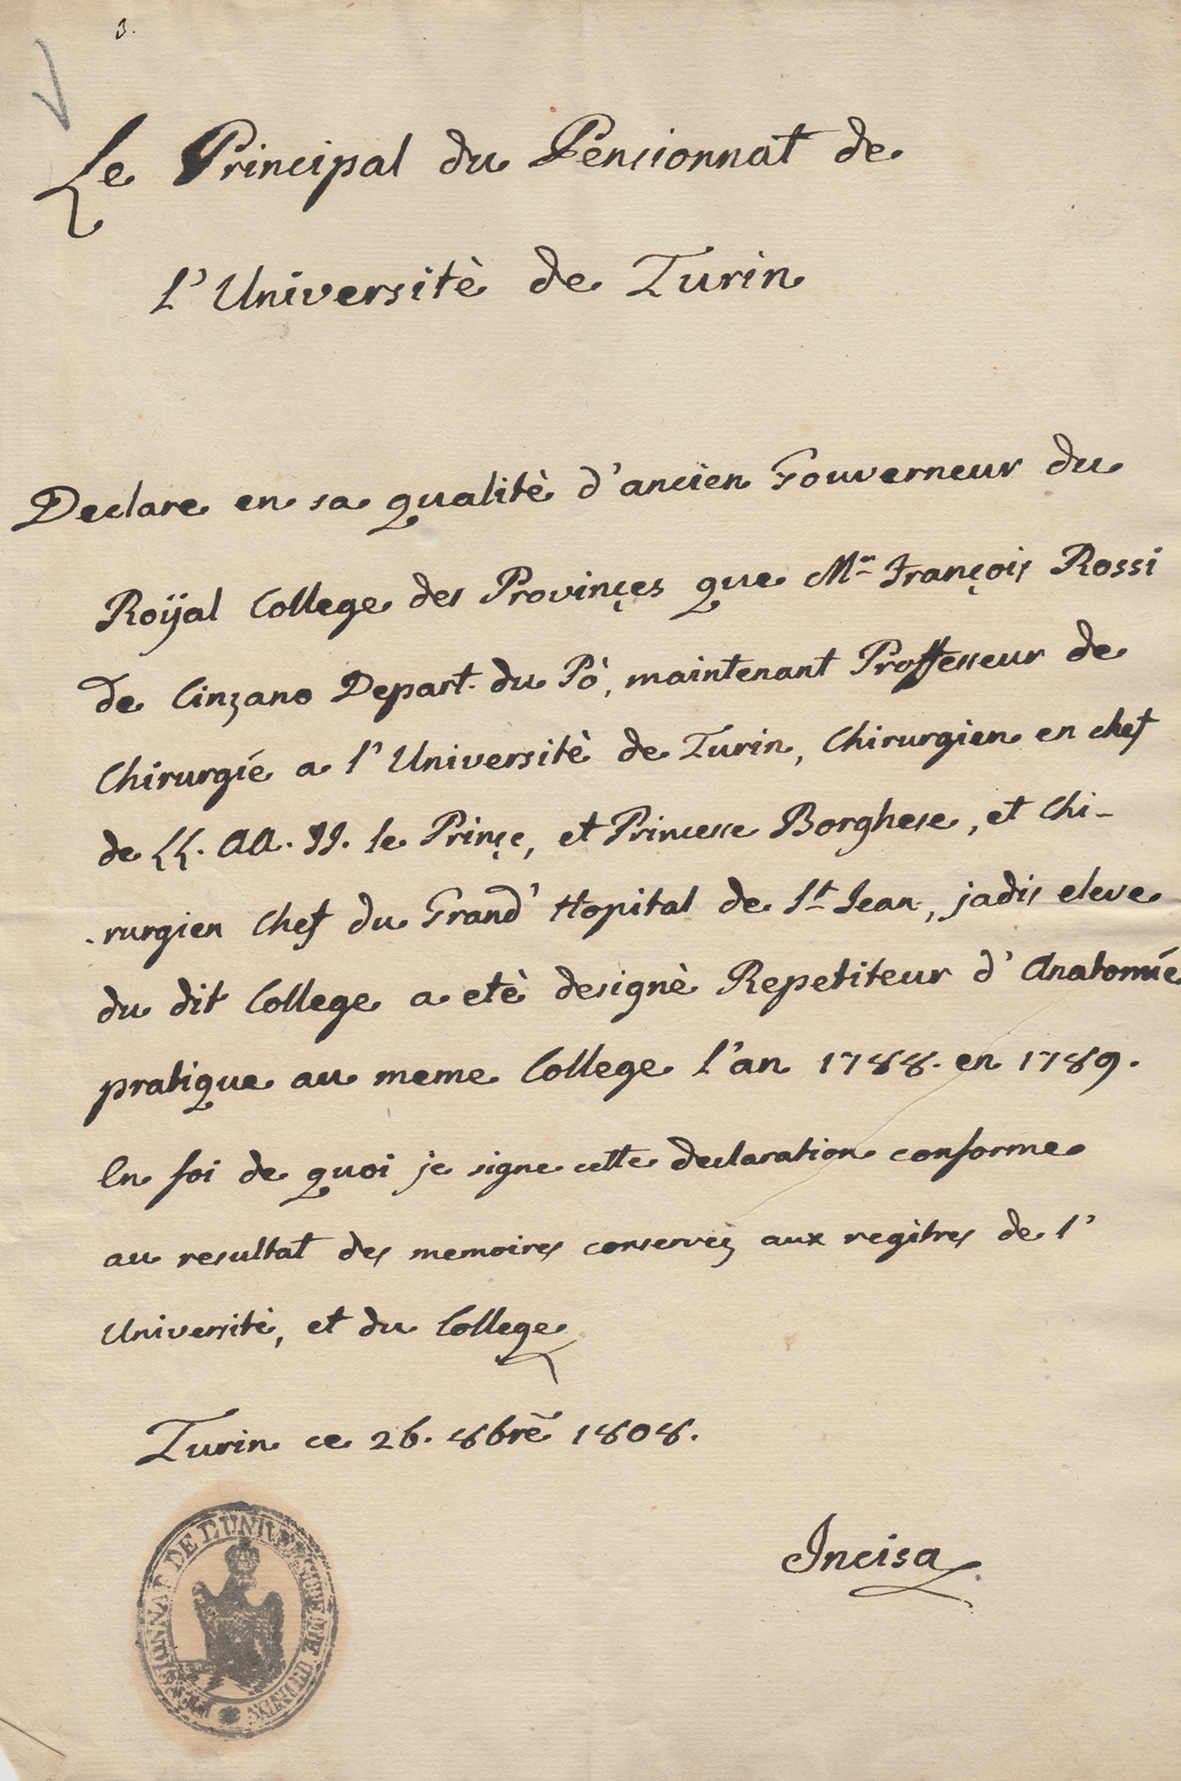 3.
Le Principal du Pensionnat de
l'Universitè de Turin
Declare en sa qualitè d'ancien Gouverneur du
Roÿal College des Provinçes que Mr François Rossi
de Cinzano Depart. du Pò, maintenant Proffesseur de
Chirurgíe a l'Universitè de Turin, Chirurgien en chef
de LL. AA. II. le Prinçe, et Princesse Borghese, et Chi-
-rurgien Chef du Grand' Hopital de St Jean, jadis eleve
du dit College a etè designè Repetiteur d'Anatomíe
pratique au meme College l'an 1788. en 1789.
En foi de quoi je signe cette declaration conforme
au resultat des memoires conservèz aux regitres de l'
Universitè, et du College
Turin ce 26. 8bre 1808.
Incisa
PENSIONNAT DE L'UNIVERSITÉ DE TURIN